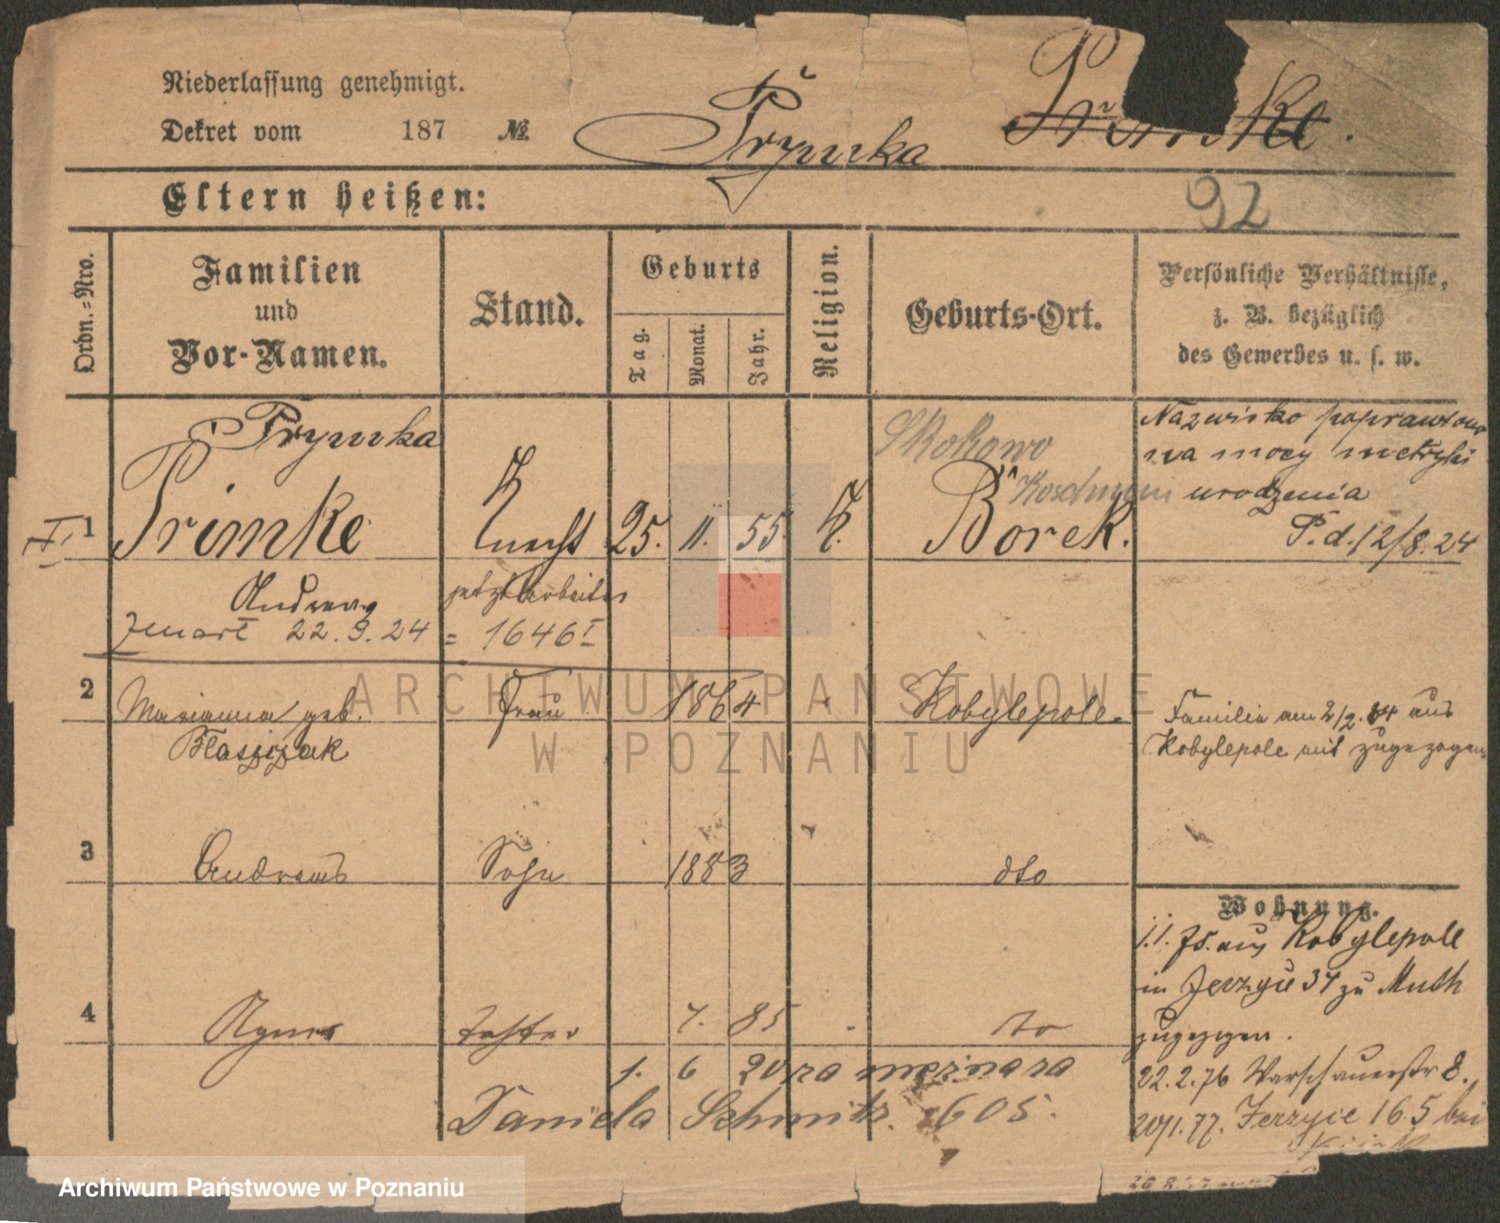 Niederlassung genehmigt.
Dekret vom 187 №
Prymka
92
Eltern heißen:
Ordn.-Nro.
Familien
und
Vor-Namen.
Stand.
Geburts
Tag.
Monat.
Jahr.
Religion.
Geburts-Ort.
Persönliche Verhältnisse,
z. B. bezüglich
des Gewerbes u. s. w.
Prymka
Skokowo
Nazwisko poprawiono
na mocy metryki
Koschmin urodzenia
I. 1 Primke Knecht 25. 11. 55. K. Borek. P.d. 12/8.24
Andreas jetzt Arbeiter
zmarł 22.9.24 = 1646 I
2 Marianna geb. Frau 1864 Kobylepole. Familie am 2/2.84 aus
Błaszczak Kobylepole mit zugezogen
3 Andreas Sohn 1883 dto
Wohnung.
1.1.75. aus Kobylepole
in Jerzyce 34 zu Muth
4 Agnes Tochter 7. 85 dto
zugezogen.
1. 6 20 za
22.2.76 Warschauerstr 8.
Daniela Schmitz 1605.
20/1.77. Jerzyce 165 bei
ARCHIWUM PAŃSTWOWE
W POZNANIU
Archiwum Państwowe w Poznaniu